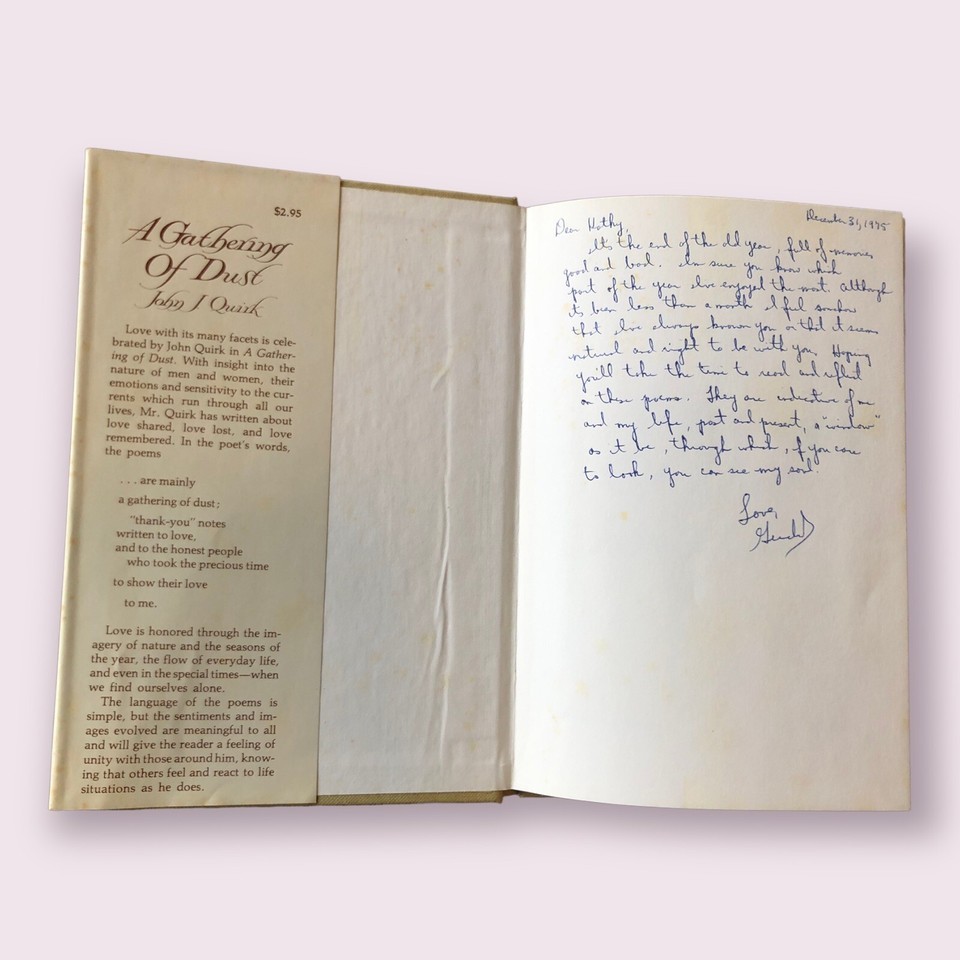 $2.95
A Gathering
Of Dust
John J Quirk
Love with its many facets is cele-
brated by John Quirk in A Gather-
ing of Dust. With insight into the
nature of men and women, their
emotions and sensitivity to the cur-
rents which run through all our
lives, Mr. Quirk has written about
love shared, love lost, and love
remembered. In the poet's words,
the poems
. . . are mainly
a gathering of dust;
"thank-you" notes
written to love,
and to the honest people
who took the precious time
to show their love
to me.
Love is honored through the im-
agery of nature and the seasons of
the year, the flow of everyday life,
and even in the special times—when
we find ourselves alone.
The language of the poems is
simple, but the sentiments and im-
ages evolved are meaningful to all
and will give the reader a feeling of
unity with those around him, know-
ing that others feel and react to life
situations as he does.
December 31, 1975
Dear Kathy,
It's the end of the old year, full of memories
good and bad. I'm sure you know which
part of the year I've enjoyed the most. Although
it's been less than a month I feel somehow
that I've always known you or that it seems
natural and right to be with you. Hoping
you'll take the time to read and reflect
on these poems. They are indicative of me
and my life, past and present, a "window"
as it be, through which, if you care
to look, you can see my soul.
Love,